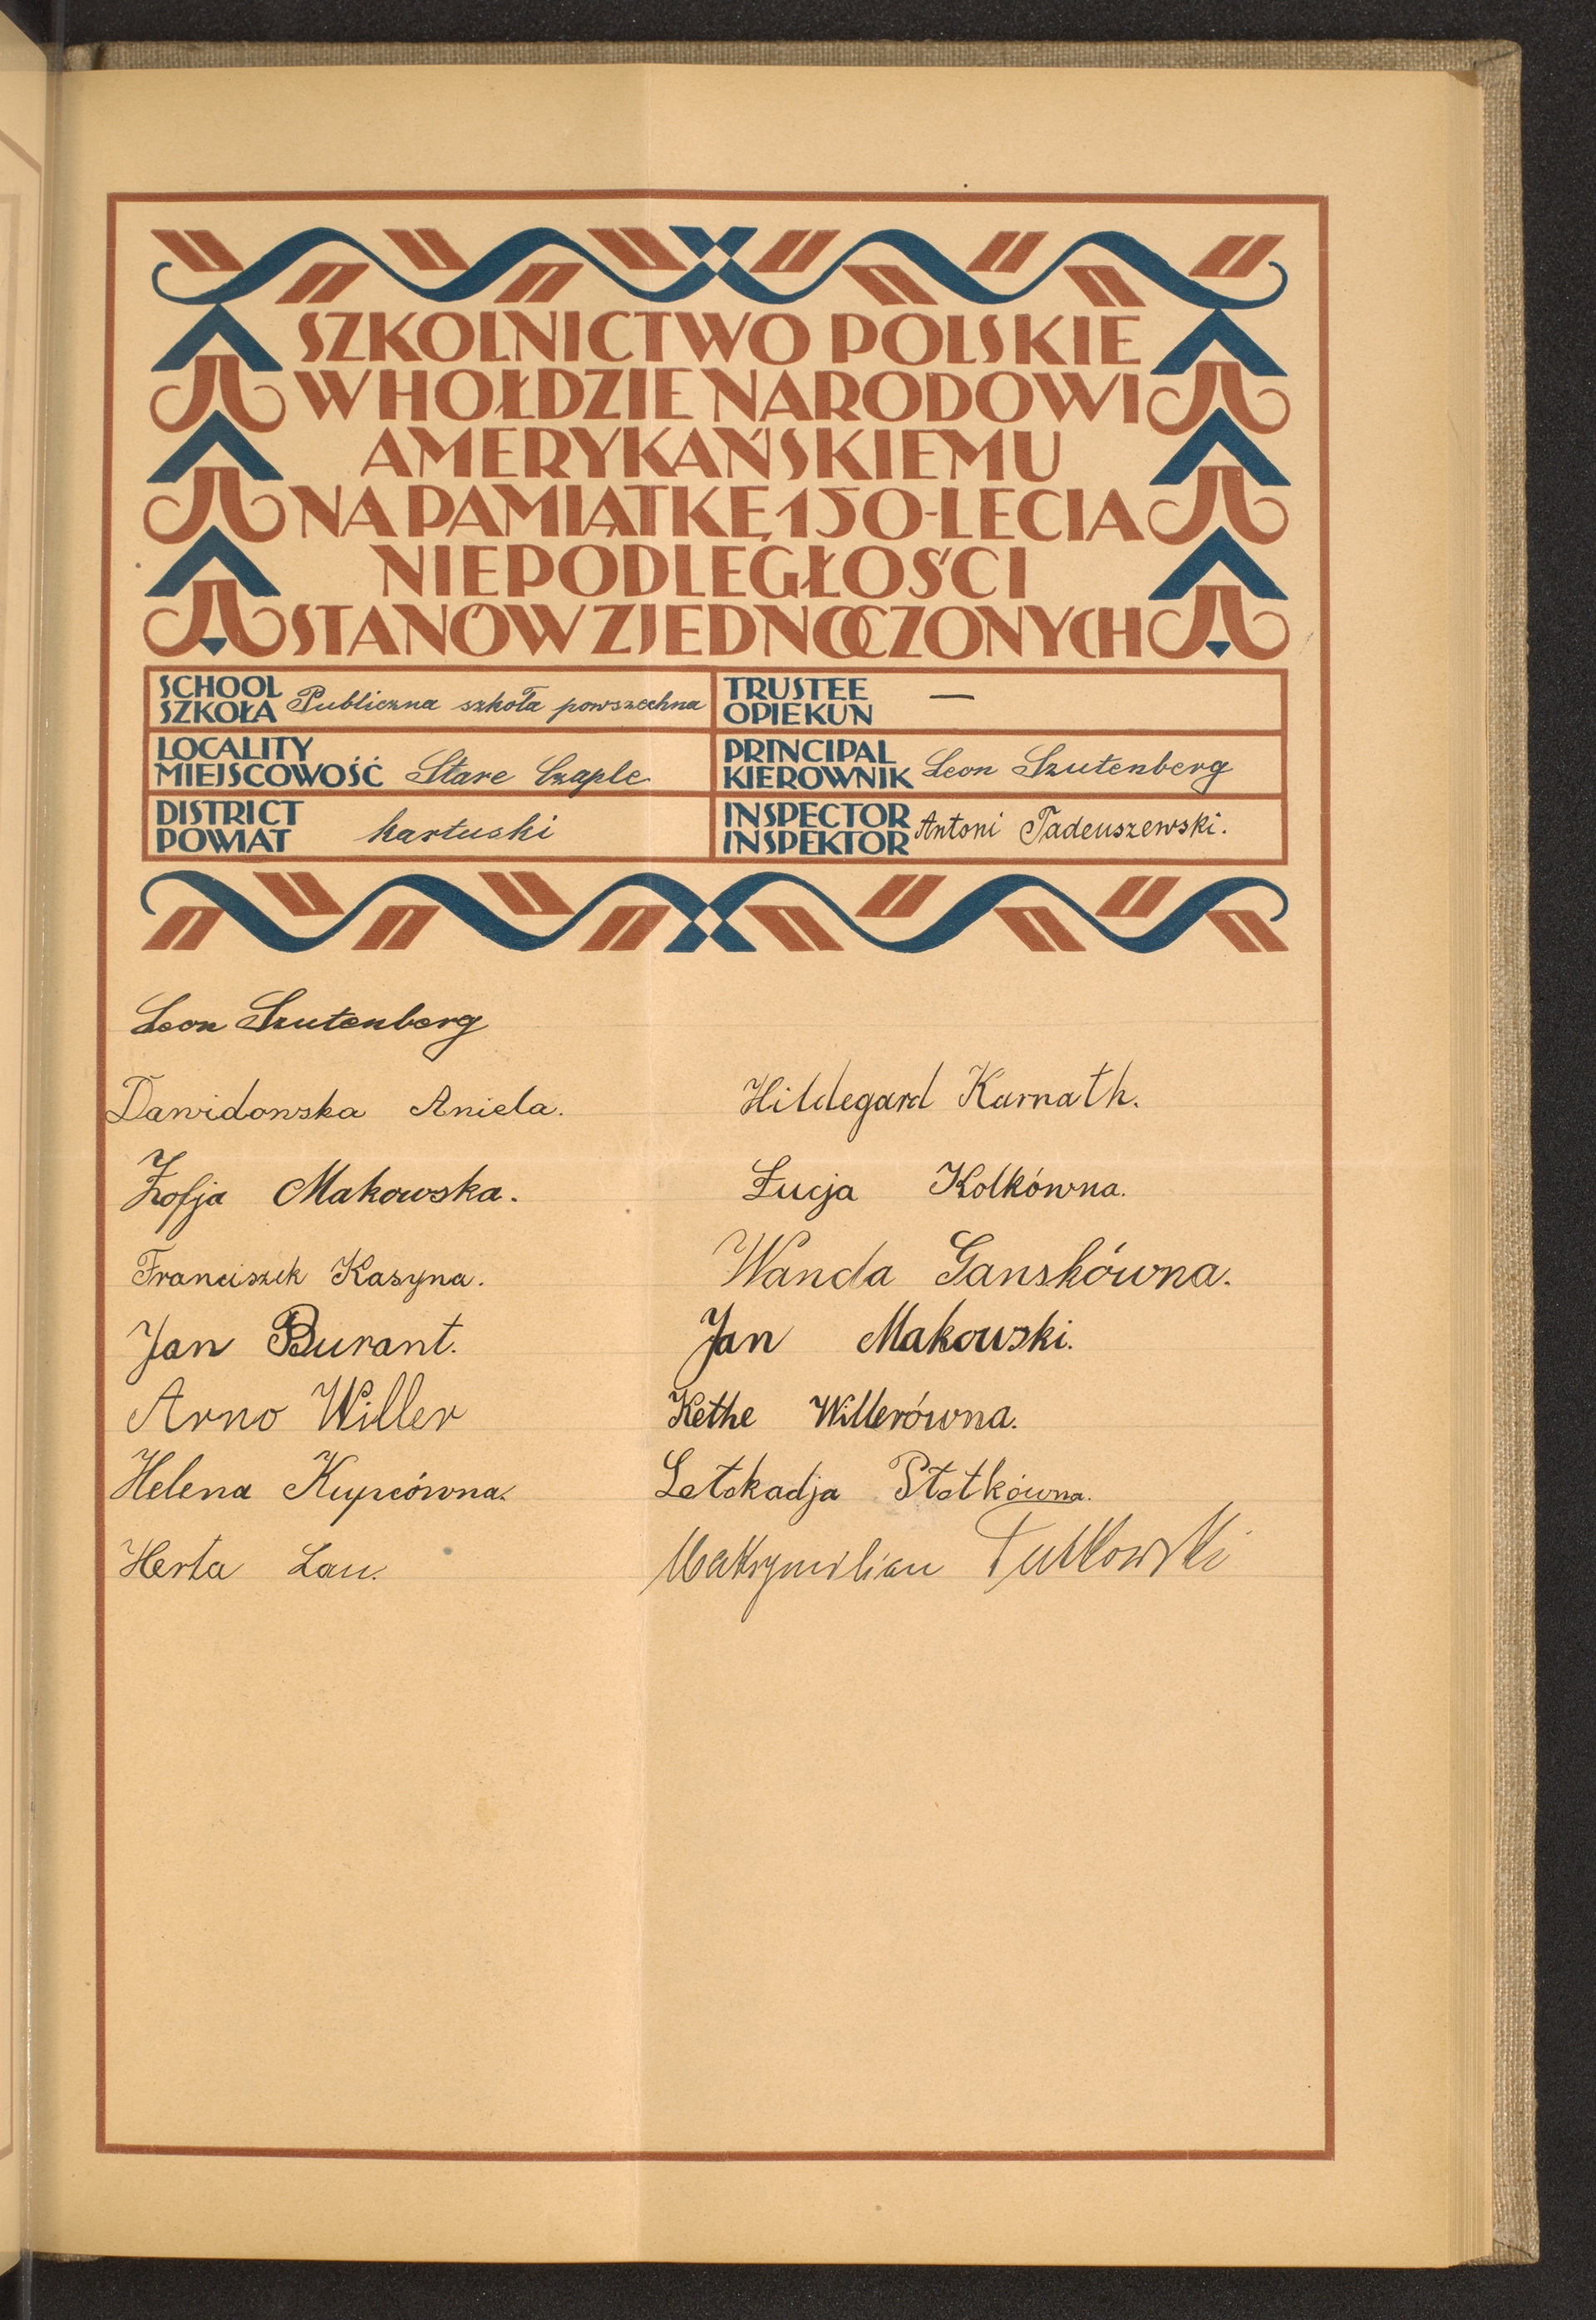 SZKOLNICTWO POLSKIE
W HOŁDZIE NARODOWI
AMERYKAŃSKIEMU
NA PAMIĄTKĘ 150-LECIA
NIEPODLEGŁOŚCI
STANÓW ZJEDNOCZONYCH
SCHOOL
SZKOŁA Publiczna szkoła powszechna
TRUSTEE
OPIEKUN —
LOCALITY
MIEJSCOWOŚĆ Stare Czaple
PRINCIPAL
KIEROWNIK Leon Szutenberg
DISTRICT
POWIAT kartuski
INSPECTOR
INSPEKTOR Antoni Tadeuszewski.
Leon Szutenberg
Dawidowska Aniela.
Hildegard Karnath.
Zofja Makowska.
Łucja Kolkówna.
Franciszek Kasyna.
Wanda Ganskówna.
Jan Burant.
Jan Makowski.
Arno Willer
Kethe Willerówna.
Helena Kupcówna.
Letokadja Ptotkówna.
Herta Lau.
Maksymilian Tutkowski